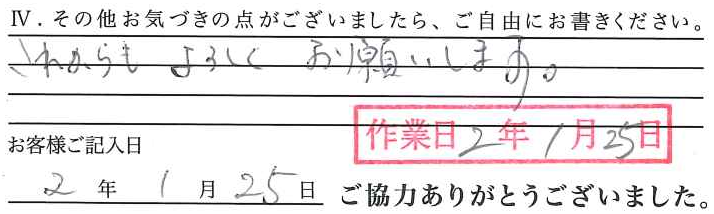 Ⅳ．その他お気づきの点がございましたら、ご自由にお書きください。
これからも よろしく お願いします。
作業日 2 年 1 月 25 日
お客様ご記入日
2 年 1 月 25 日 ご協力ありがとうございました。